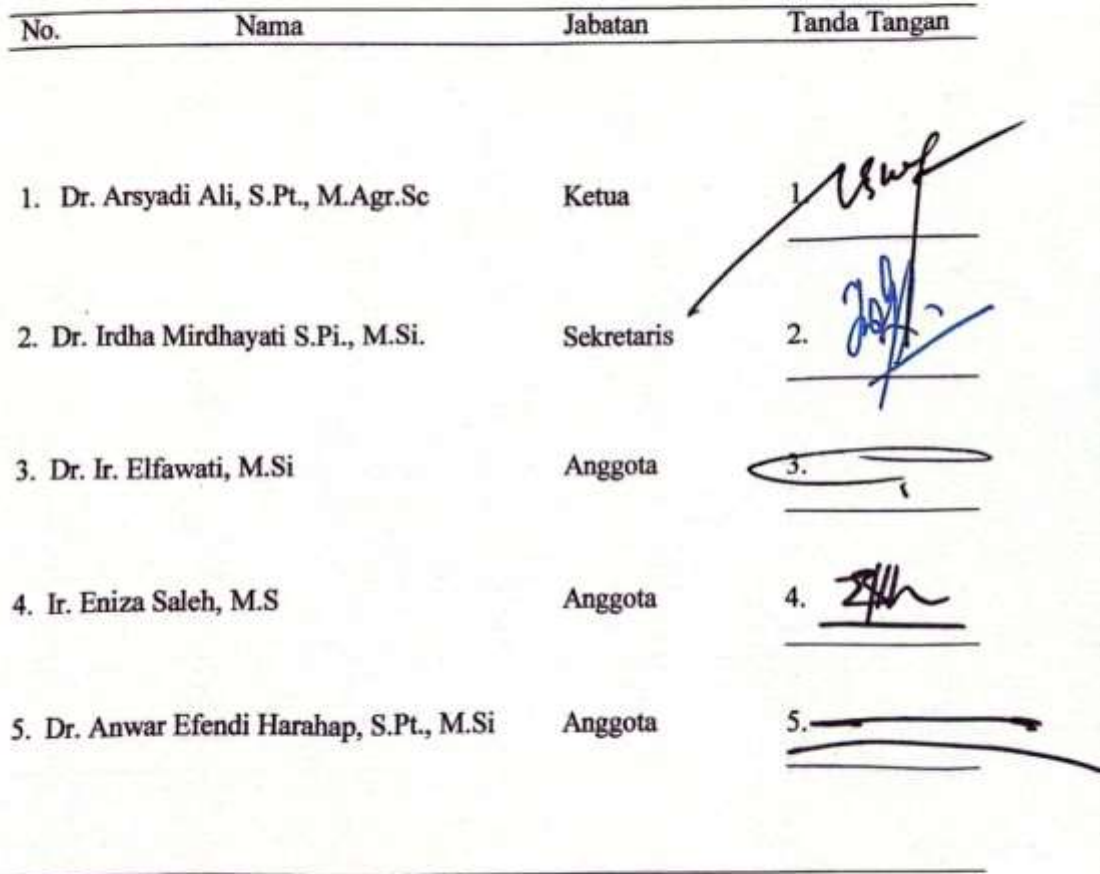 No. Nama Jabatan Tanda Tangan
1. Dr. Arsyadi Ali, S.Pt., M.Agr.Sc Ketua 1.
2. Dr. Irdha Mirdhayati S.Pi., M.Si. Sekretaris 2.
3. Dr. Ir. Elfawati, M.Si Anggota 3.
4. Ir. Eniza Saleh, M.S Anggota 4.
5. Dr. Anwar Efendi Harahap, S.Pt., M.Si Anggota 5.